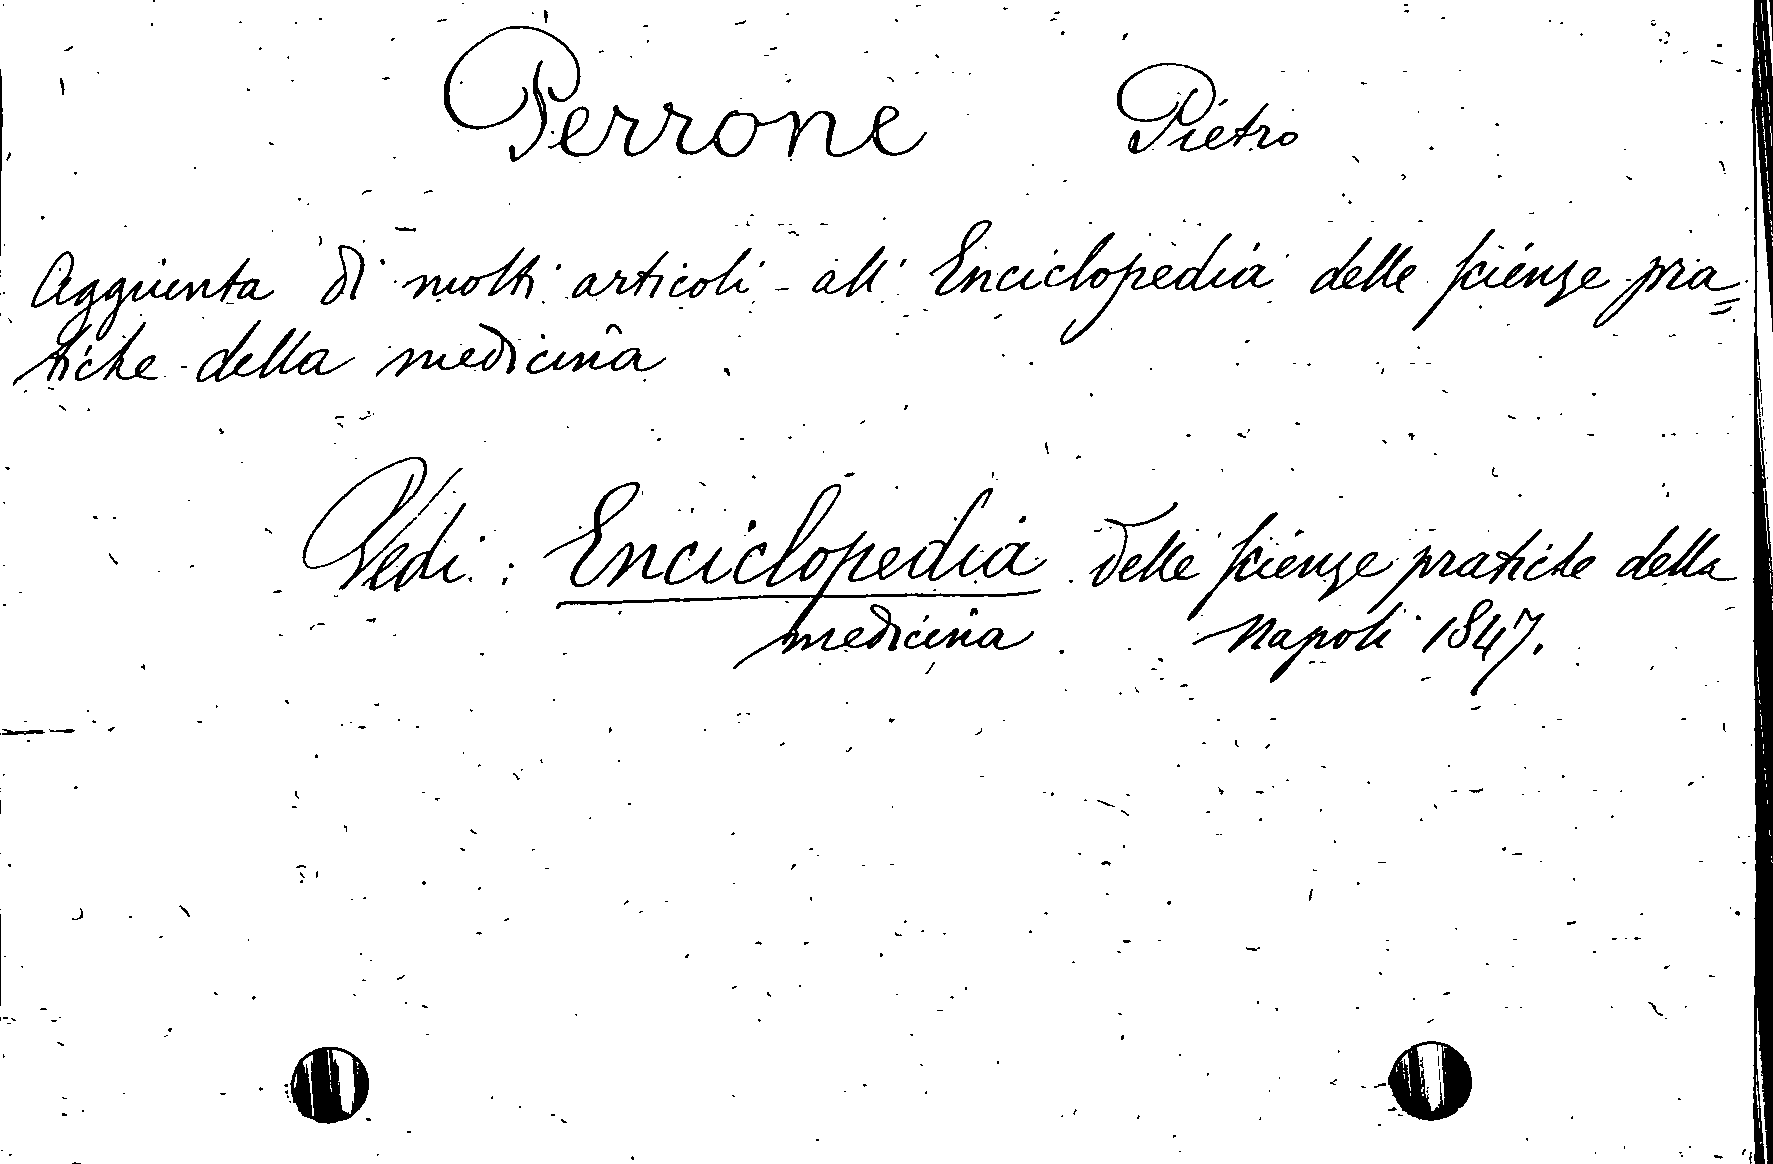 Perrone Pietro
Aggiunta di molti articoli all' Enciclopedia delle scienze pra=
tiche della medicina
Vedi: Enciclopedia delle scienze pratiche della
medicina Napoli 1847.